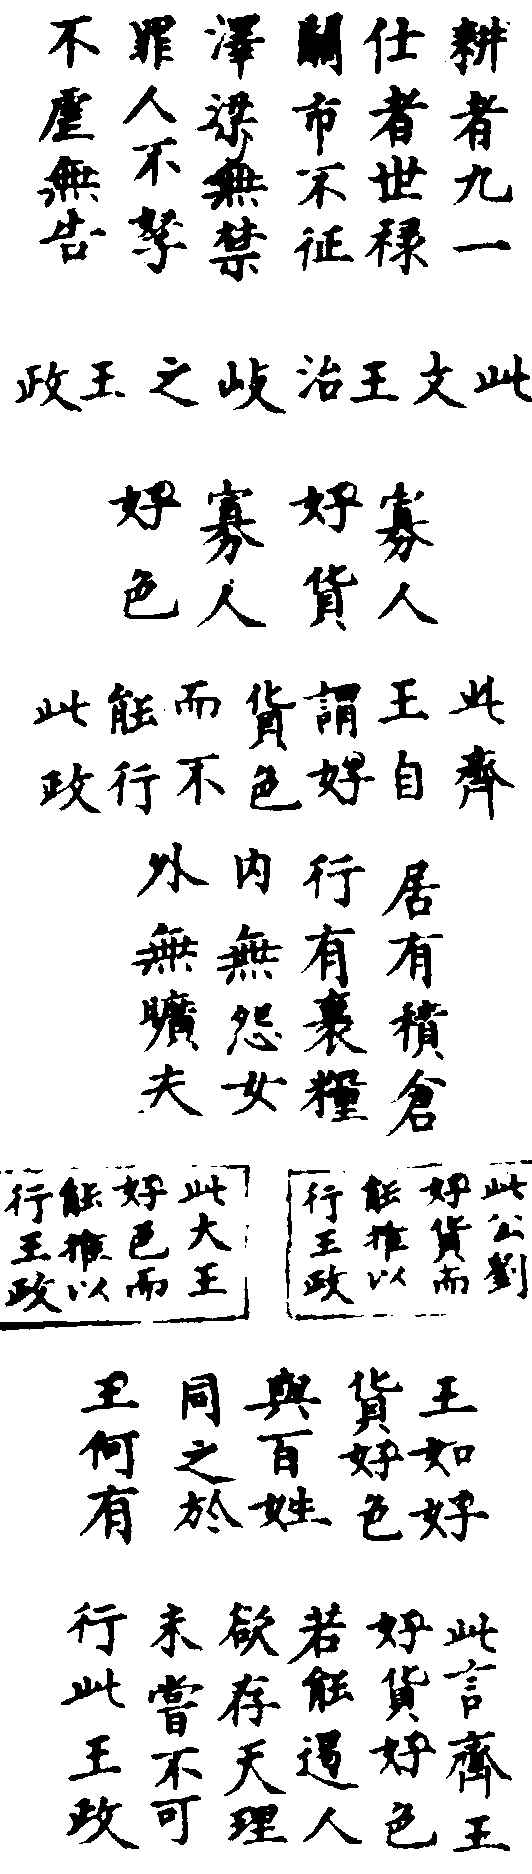 耕者九一
仕者世禄
關市不征
澤梁無禁
罪人不孥
不虐無告
此文王治岐之王政
寡人
好貨
寡人
好色
此齊
王自
謂好
貨色
而不
能行
此政
居有積倉
行有裹糧
內無怨女
外無曠夫
此公劉
好貨而
能推以
行王政
此大王
好色而
能推以
行王政
王如好
貨好色
與百姓
同之於
王何有
此言齊王
好貨好色
若能遏人
欲存天理
未嘗不可
行此王政